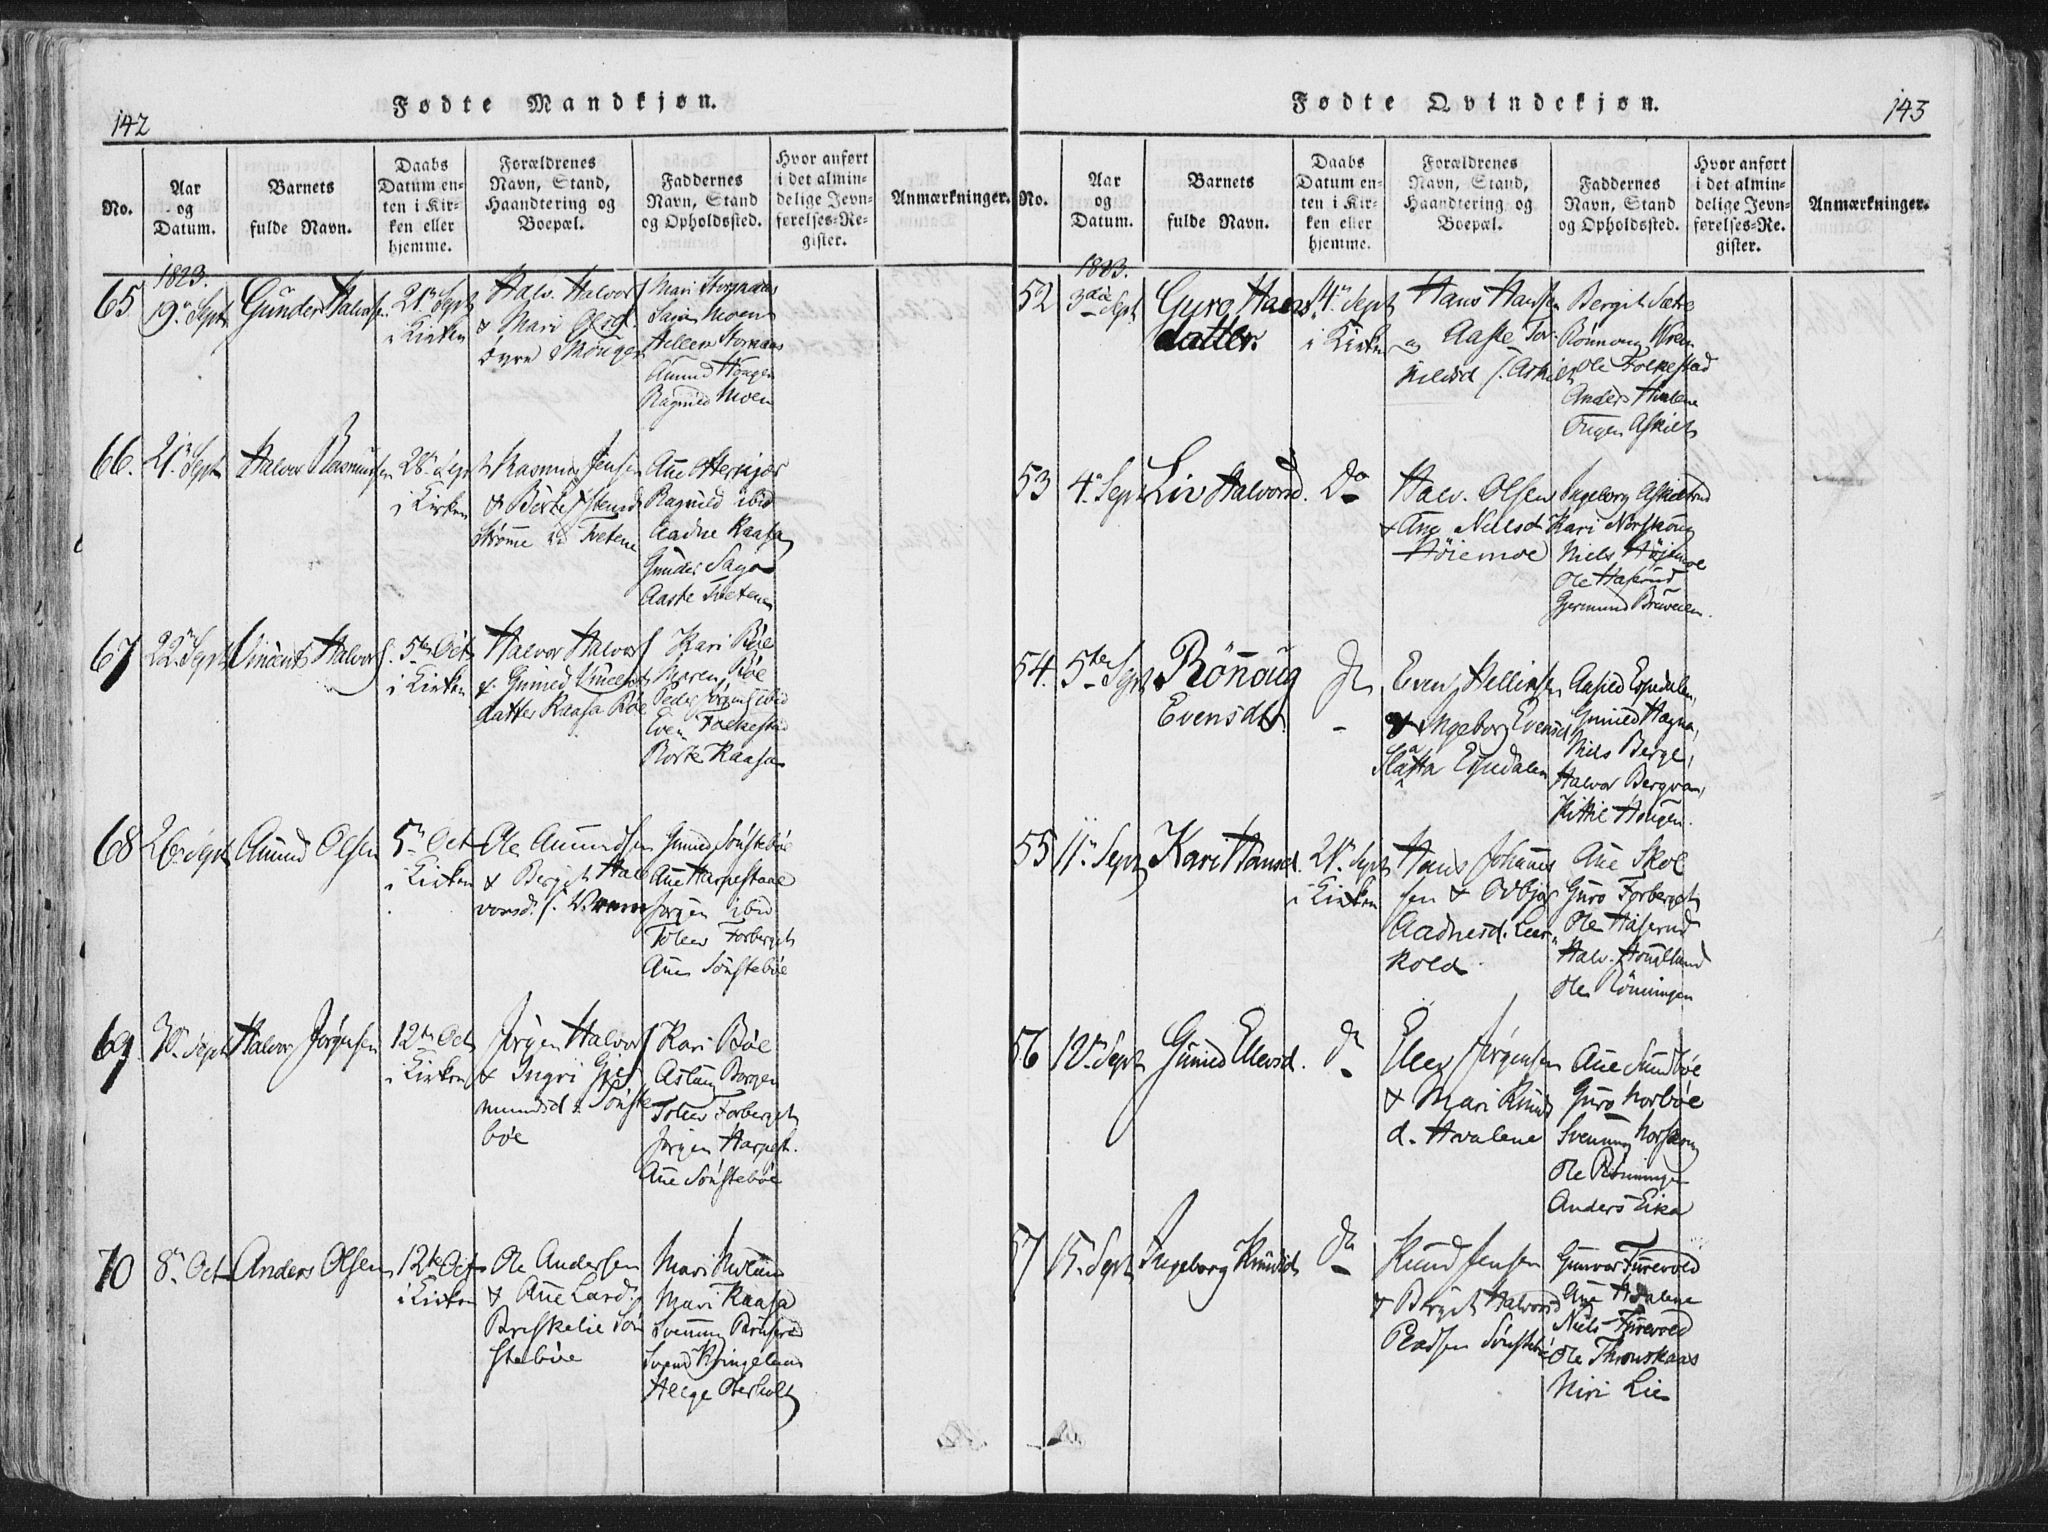 142
Fødte Mandkjøn.
No.
Aar
og
Datum.
Barnets
fulde Navn.
Daabs
Datum en-
ten i Kir-
ken eller
hjemme.
Forældrenes
Navn, Stand,
Haandtering og
Boepæl.
Faddernes
Navn, Stand
og Opholdssted.
Hvor anført
i det almin-
delige Jevn-
førelses-Re-
gister.
Anmærkninger.
1823.
65
19 Sept
Gunder Halvors
21 Sept
i Kirken
Halv. Halvors
& Mari
Mari
Moen
Hellew
Amund Hougen
Ragnild Moen
66.
21 Sept
Halvor Rasmussen
28 Sept
i Kirken
Rasmus Jensen
&
Tvetene
Ragnild ibid
Aadne Raasa
Gunder
Aaste Tvetene
67
22 Sept
Vincent Halvors.
5te Oct
i Kirken
Halvor Halvors
& Gunild Vincents
datter Raasa Bøe
Kari Bøe
Maren Bøe
Peder Jørgens ibid
Even Folkestad
Borte Raasa
68
26 Sept
Amund Olsen
5 Oct
i Kirken
Ole Amundsen
& Bergit Hal
vorsd.
Gunild Sønstebøe
Jørgen ibid
Tolew Forberget
Ane Sønstebøe
69.
30 Sept
Halvor Jørgensen
12te Oct
i Kirken
Jørgen Halvors
& Ingri Gjer
mundsd Sønste
bøe
Kari Bøe
Aslaug Borgen
Tolew Forberget
Jørgen Harpest.
Ane Sønstebøe
70
8 Oct
Anders Olsen
12te Oct
i Kirken
Ole Andersen
& Ane Larsd.
Briskelie Søn
stebøe
Mari
Mari Raasa
Svenung
Svend Ringelien
Helge Oterholt
143
Fødte Qvindekjøn.
No.
Aar
og
Datum.
Barnets
fulde Navn.
Daabs
Datum en-
ten i Kir-
ken eller
hjemme.
Forældrenes
Navn, Stand,
Haandtering og
Boepæl.
Faddernes
Navn, Stand
og Opholdssted.
Hvor anført
i det almin-
delige Jevn-
førelses-Re-
gister.
Anmærkninger.
1823.
52
3die Sept
Guro Hans
datter.
14 Sept
i Kirken
Hans Hansen
og Aaste Tor-
kildsd
Bergit Sætre
Rønnoug
Ole Folkestad
Anders Hvalene
Askilt
53
4 Sept
Liv Halvorsd.
Do
Halv. Olsen
& Ane Nielsd
Høiemoe
Ingeborg
Kari Norskoug
Niels Høiemoe
Ole Haserud
Gjermund
54.
5te Sept
Rønoug
Evensdt
Do
Even Hellikson
& Ingeborg Evensd
Slaatta Espedalen
Aasild Espedalen,
Gunild Hagna,
Niels Berge,
Halvor Bergvan,
Kittil Hougen.
55
11 Sept
Kari Hansd.
21 Sept
i Kirken
Hans Johannes
sen &
Aadnesd. Leer-
kold.
Ane
Guro Forberget
Ole Haserud
Halv.
Ole Rønningen
56
12 Sept
Gunild Ellevsd.
Do
Ellev Jørgensen
& Mari Knuds
d. Hvalene
Ane Sundbøe
Guro Norbøe
Svenung Norskoug
Ole Rønningen
Anders Eika
57
15 Sept
Ingeborg Knudsd
Do
Knud Jensen
& Bergit Halvorsd
Sønstebø
Gunvor Furevold
Ane Hvalene
Niels Furevold
Ole
Niri Lie